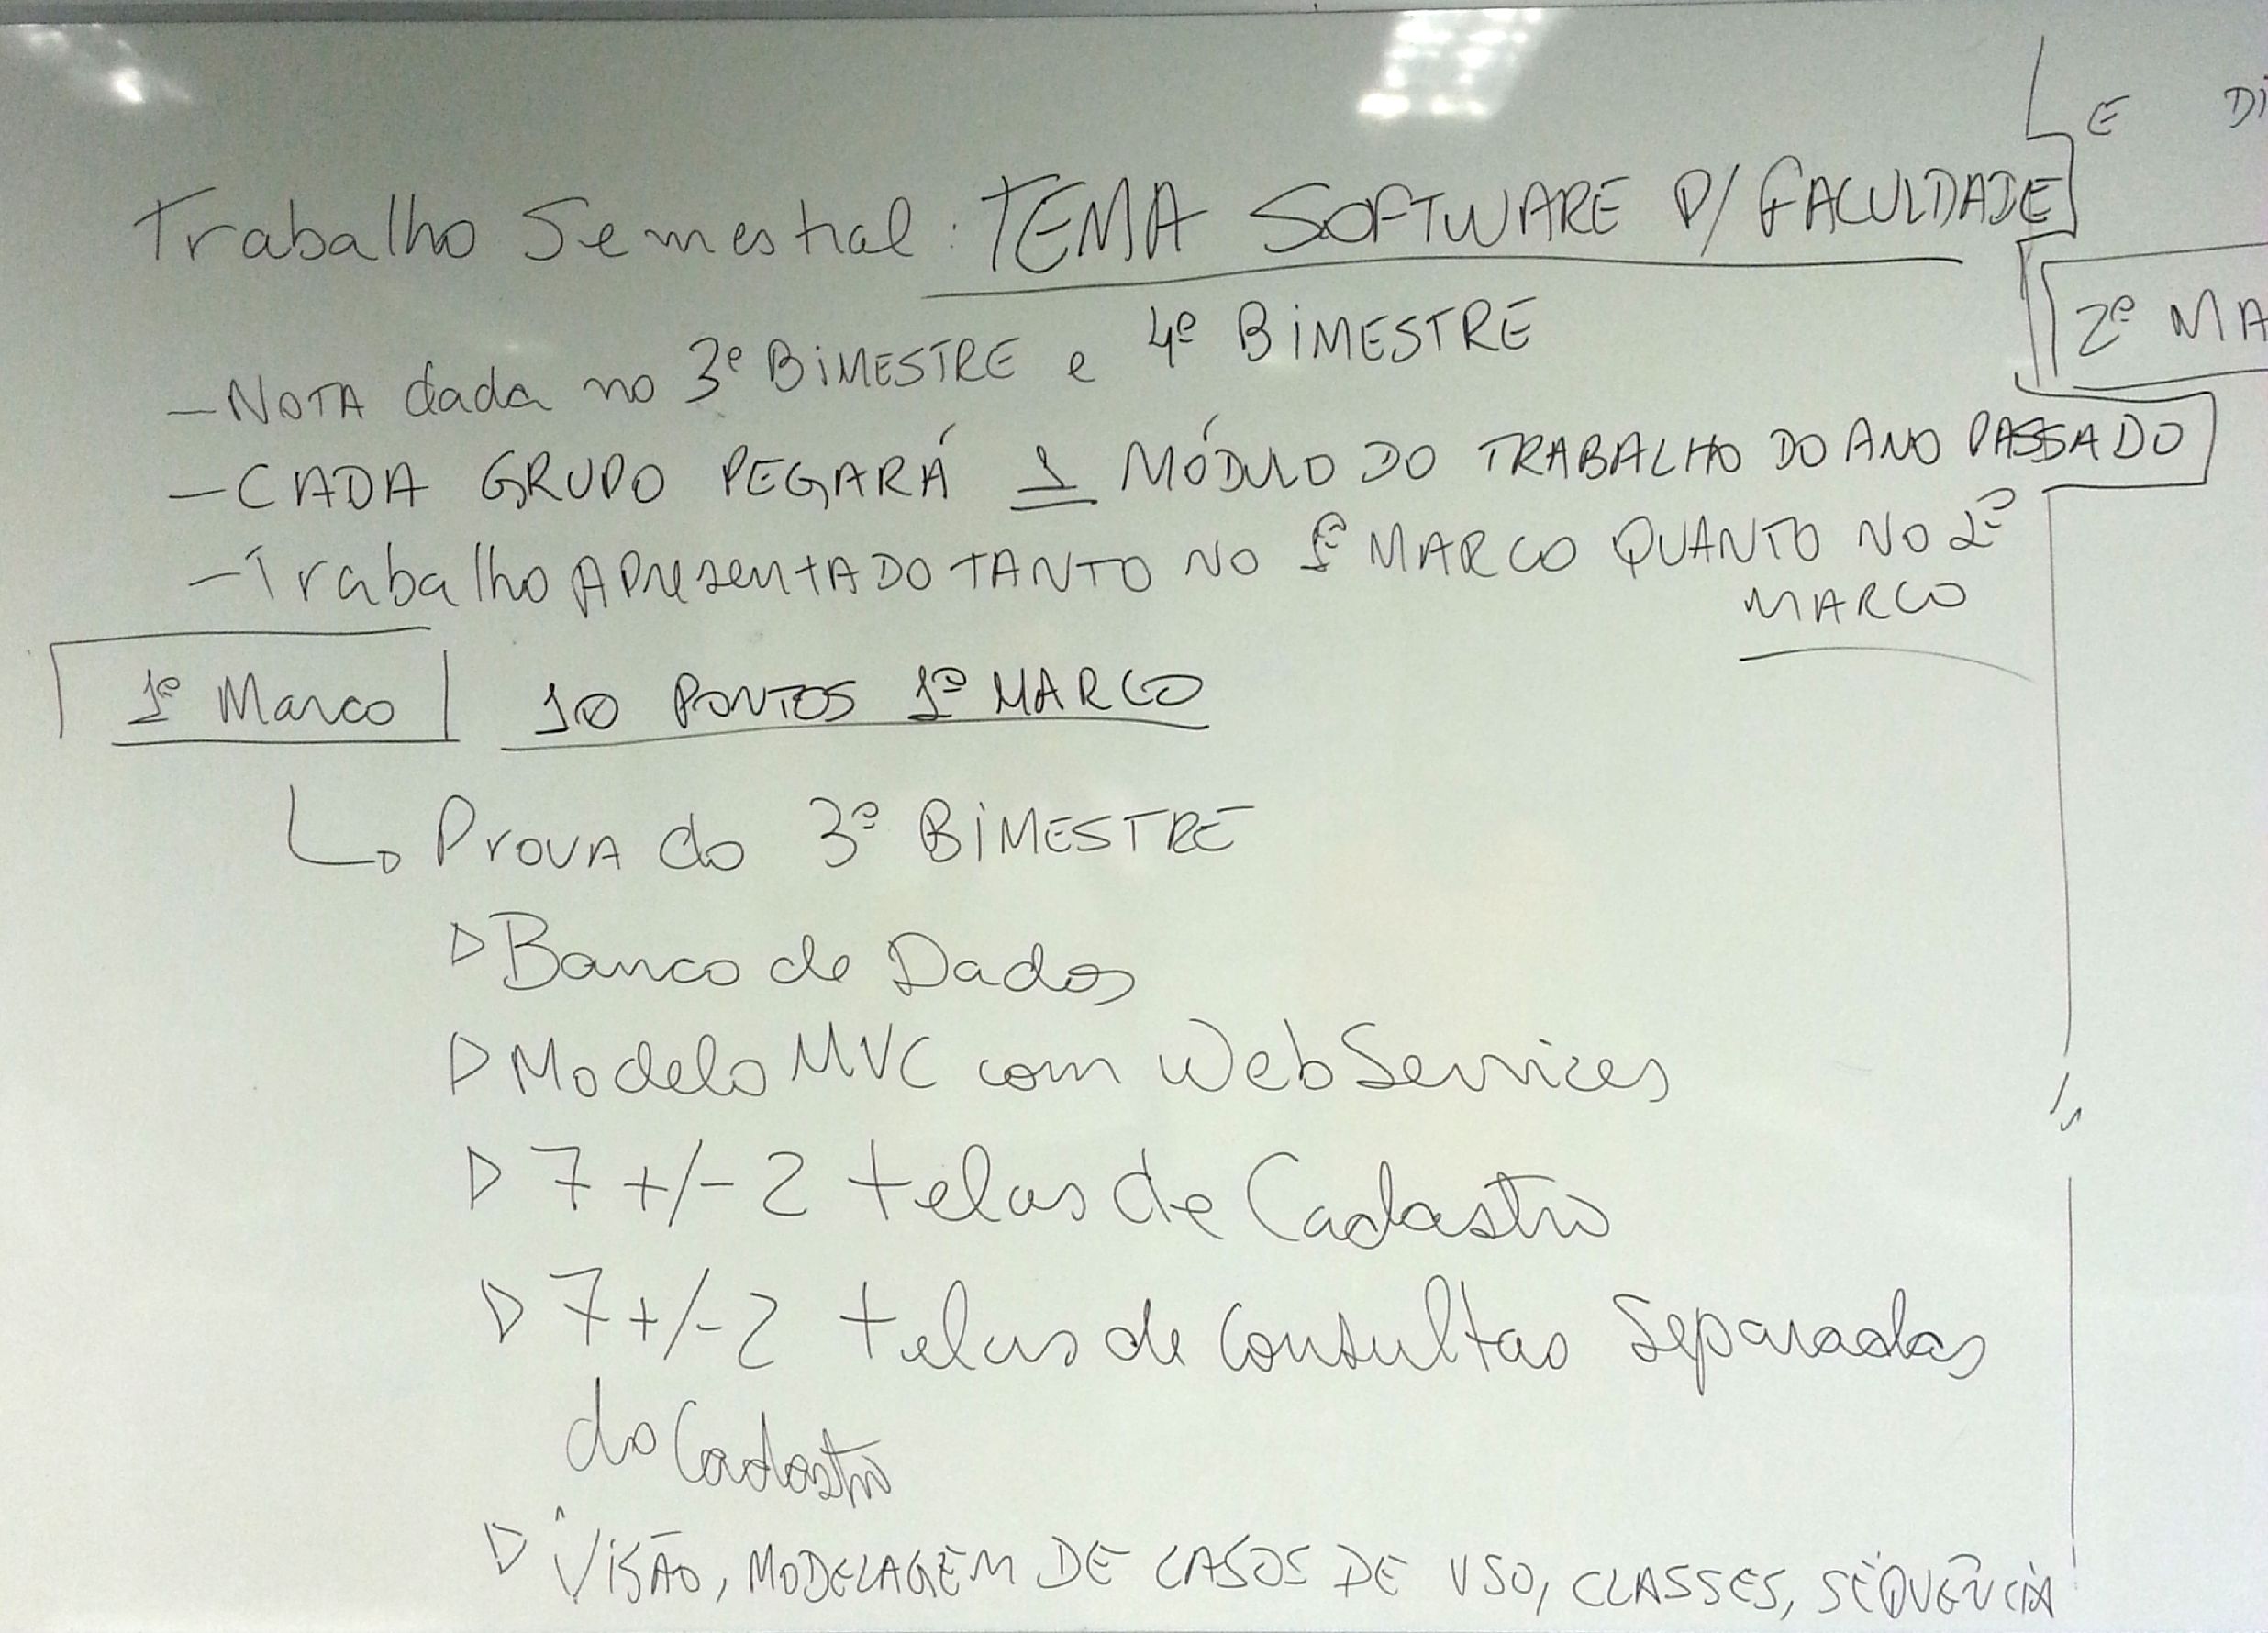 Trabalho Semestral: TEMA SOFTWARE P/ FACULDADE
- NOTA dada no 3º BIMESTRE e 4º BIMESTRE
- CADA GRUPO PEGARÁ 1 MÓDULO DO TRABALHO DO ANO PASSADO
- Trabalho APresentADO TANTO NO 1º MARCO QUANTO NO 2º
MARCO
1º Marco 10 PONTOS 1º MARCO
Prova do 3º BIMESTRE
Banco de Dados
Modelo MVC com WebServices
7 +/- 2 telas de Cadastro
7 +/- 2 telas de Consultas Separadas
do Cadastro
VISÃO, MODELAGEM DE CASOS DE USO, CLASSES, SEQUÊNCIA
E DI
2º MA